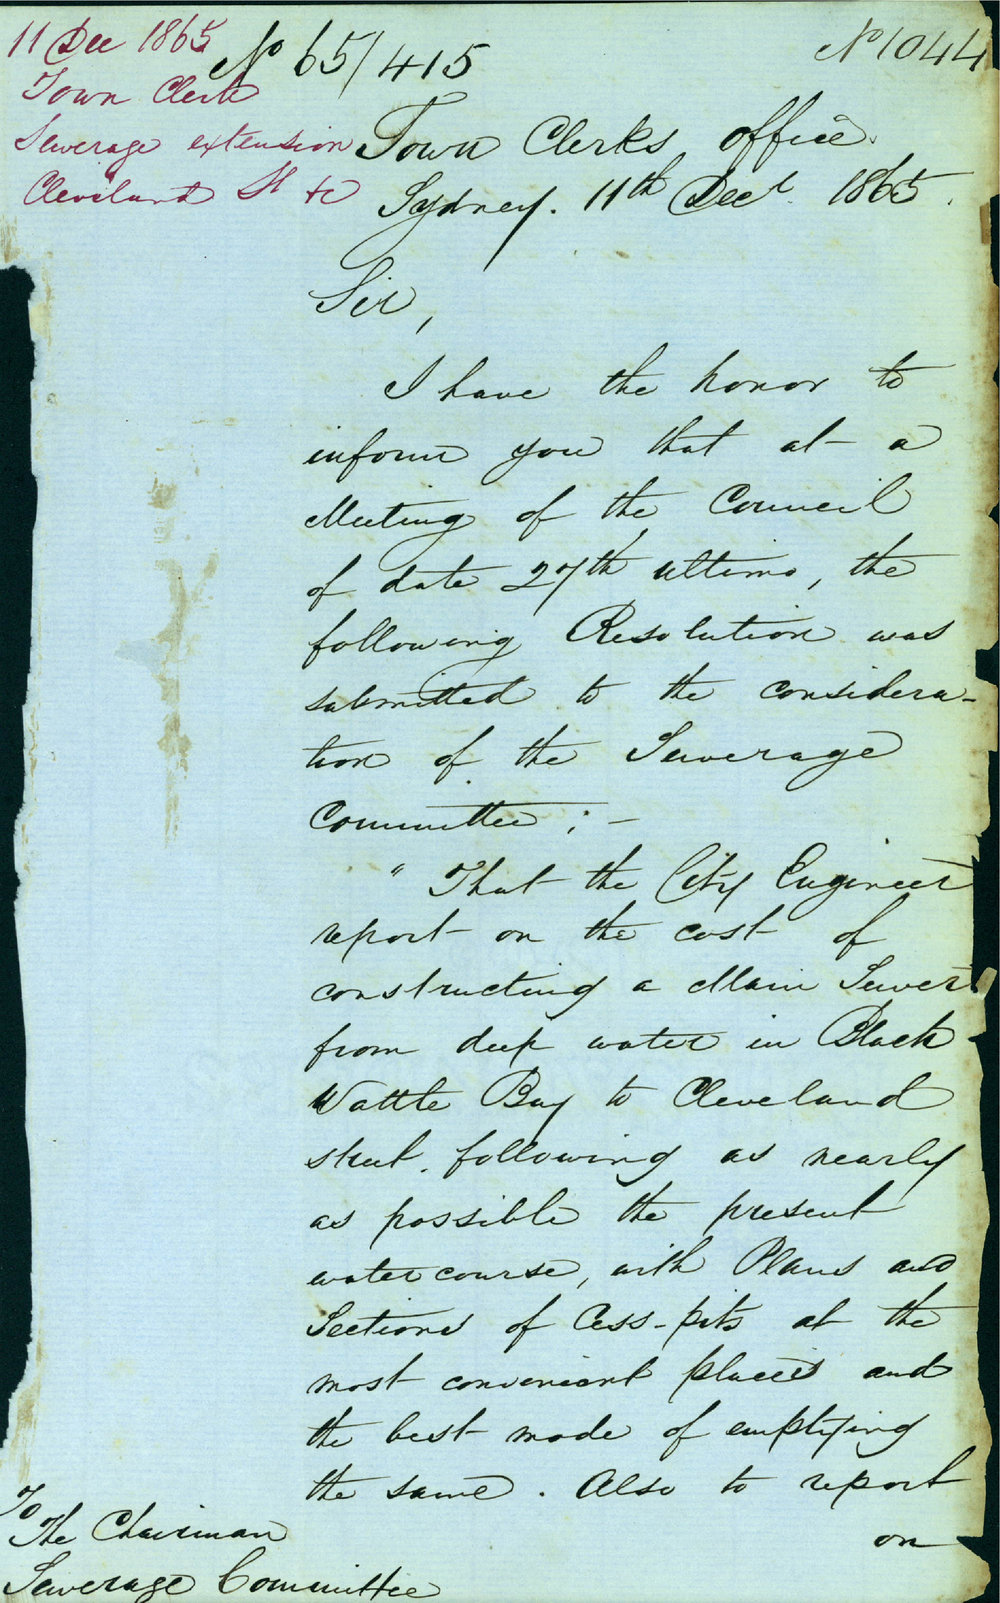 11 Dec 1865
Town Clerk
Sewerage extension
Cleveland St &c
No 65/415
No 1044
Town Clerks office
Sydney. 11th Decr. 1865.
Sir,
I have the honor to
inform you that at a
Meeting of the Council
of date 27th ultimo, the
following Resolution was
submitted to the considera-
tion of the Sewerage
Committee ; -
"That the City Engineer
report on the cost of
constructing a Main Sewer
from deep water in Black
Wattle Bay to Cleveland
street. following as nearly
as possible the present
watercourse, with Plans and
Sections of Cess-pits at the
most convenient places and
the best mode of emptying
the same. Also to report
on
To
The Chairman
Sewerage Committee